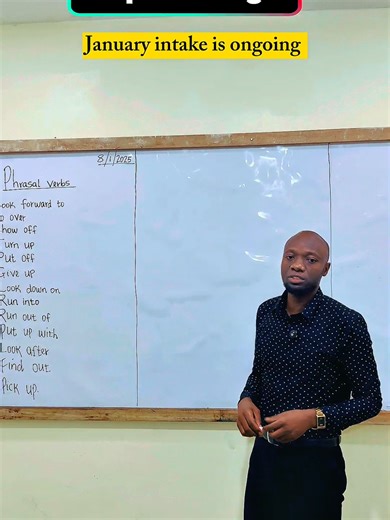 January intake is ongoing
8/1/2025
Phrasal verbs
ook forward to
o over
how off
Turn up
Put off
Give up
Look down on
Run into
Run out of
Put up with
Look after
Find out
Pick up.